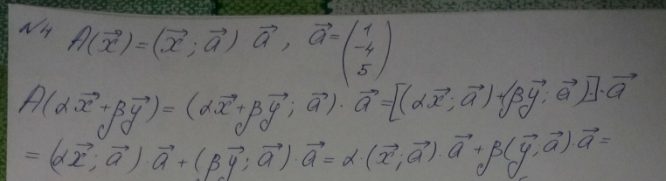 №4 A(x⃗) = (x⃗ ; a⃗) a⃗ , a⃗ = (1 -4 5)
A(αx⃗ + βy⃗) = (αx⃗ + βy⃗ ; a⃗) · a⃗ = [(αx⃗ ; a⃗) + (βy⃗ ; a⃗)] · a⃗
= (αx⃗ ; a⃗) · a⃗ + (βy⃗ ; a⃗) · a⃗ = α · (x⃗ ; a⃗) · a⃗ + β(y⃗ ; a⃗) · a⃗ =